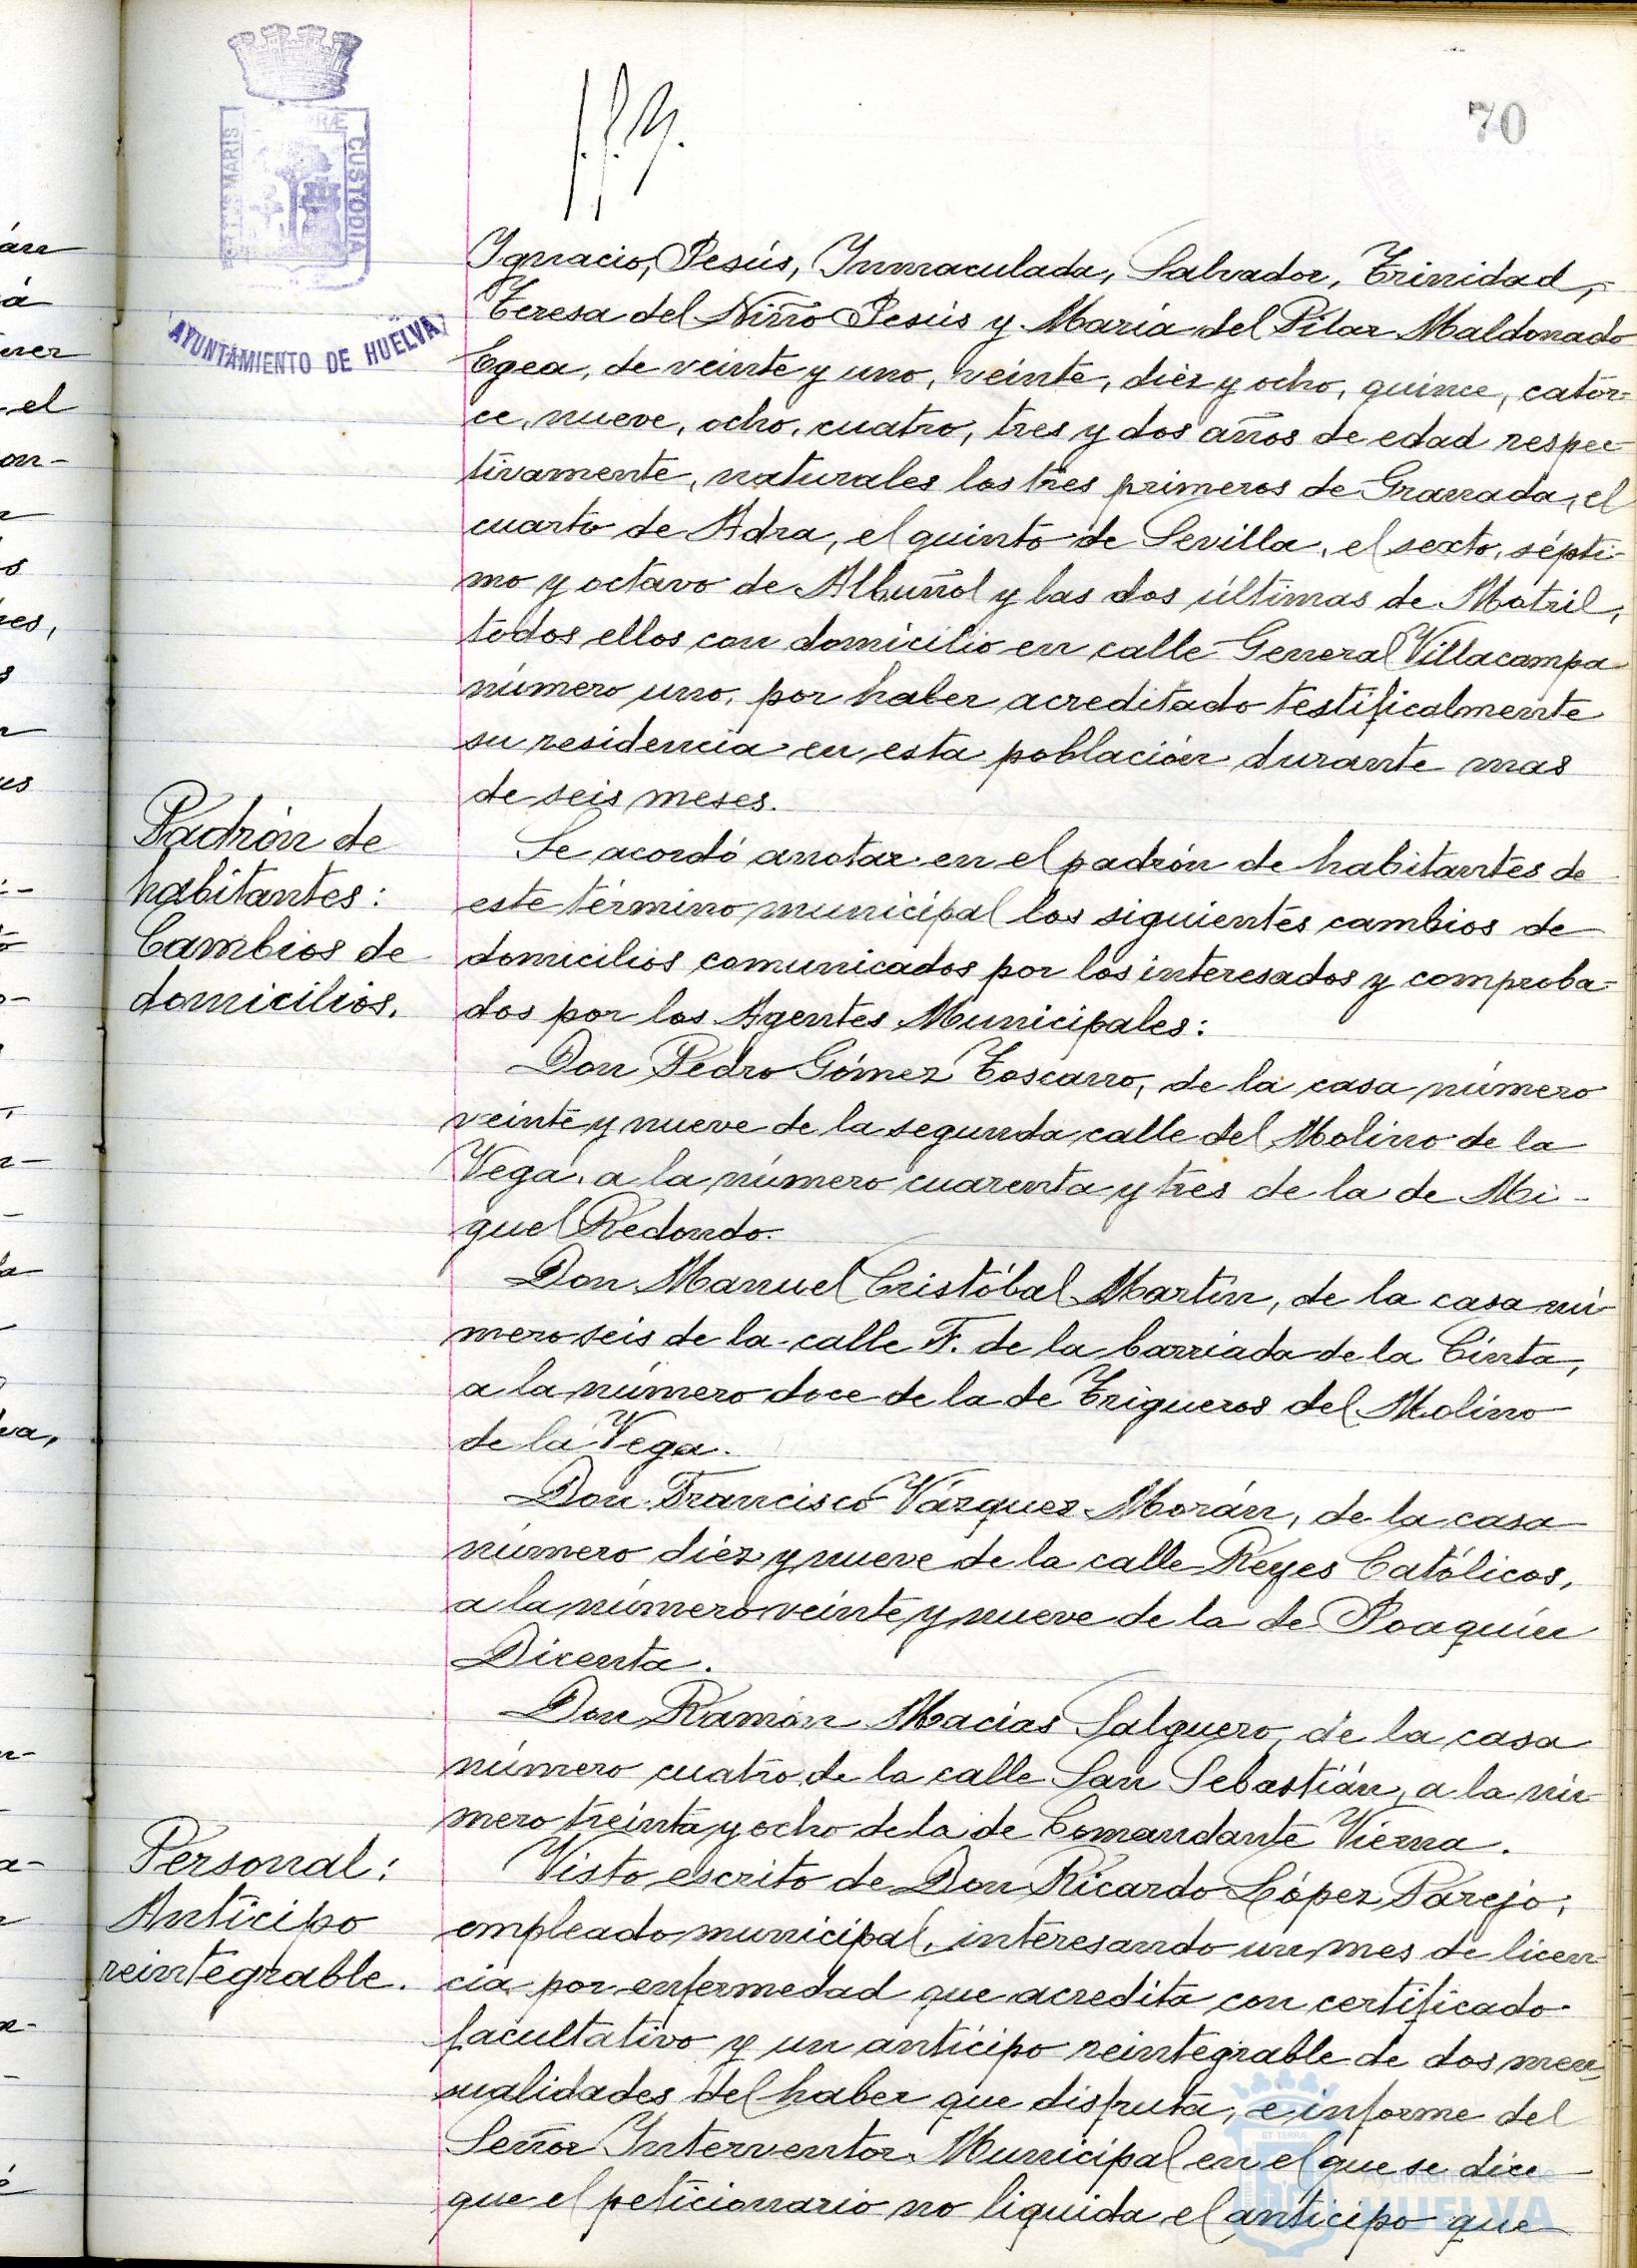 70
PORTUS MARIS ET TERRÆ CUSTODIA
AYUNTAMIENTO DE HUELVA
Ignacio, Jesús, Inmaculada, Salvador, Trinidad,
Teresa del Niño Jesús y María del Pilar Maldonado
Egea, de veinte y uno, veinte, diez y ocho, quince, cator-
ce, nueve, ocho, cuatro, tres y dos años de edad respec-
tivamente, naturales los tres primeros de Granada, el
cuarto de Adra, el quinto de Sevilla, el sexto, sépti-
mo y octavo de Albuñol y las dos últimas de Motril,
todos ellos con domicilio en calle General Villacampa
número uno, por haber acreditado testificalmente
su residencia en esta población durante mas
de seis meses.
Padrón de
habitantes:
Cambios de
domicilios.
Se acordó anotar en el padrón de habitantes de
este término municipal los siguientes cambios de
domicilios comunicados por los interesados y comproba-
dos por los Agentes Municipales:
Don Pedro Gómez Toscano, de la casa número
veinte y nueve de la segunda calle del Molino de la
Vega, a la número cuarenta y tres de la de Mi-
guel Redondo.
Don Manuel Cristóbal Martín, de la casa nú-
mero seis de la calle F. de la barriada de la Cinta,
a la número doce de la de Trigueros del Molino
de la Vega.
Don Francisco Vázquez Morán, de la casa
número diez y nueve de la calle Reyes Católicos,
a la número veinte y nueve de la de Joaquín
Dicenta.
Don Ramón Macías Salguero, de la casa
número cuatro de la calle San Sebastián, a la nú-
mero treinta y ocho de la de Comandante Vierna.
Personal:
Anticipo
reintegrable.
Visto escrito de Don Ricardo López Parejo,
empleado municipal, interesando un mes de licen-
cia por enfermedad que acredita con certificado
facultativo y un anticipo reintegrable de dos men-
sualidades del haber que disfruta, e informe del
Señor Interventor Municipal en el que se dice
que el peticionario no liquida el anticipo que
HUELVA